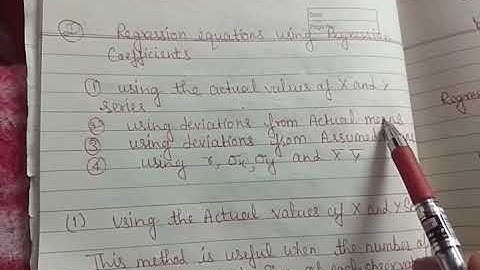 ② Regression equations using Regression
Coefficients
① using the actual values of X and Y
series
② using deviations from Actual means
③ using deviations from Assumed
④ using r, σx, σy and X̄ Ȳ
(1) Using the Actual values of X and Y
This method is useful when the number of
Regres